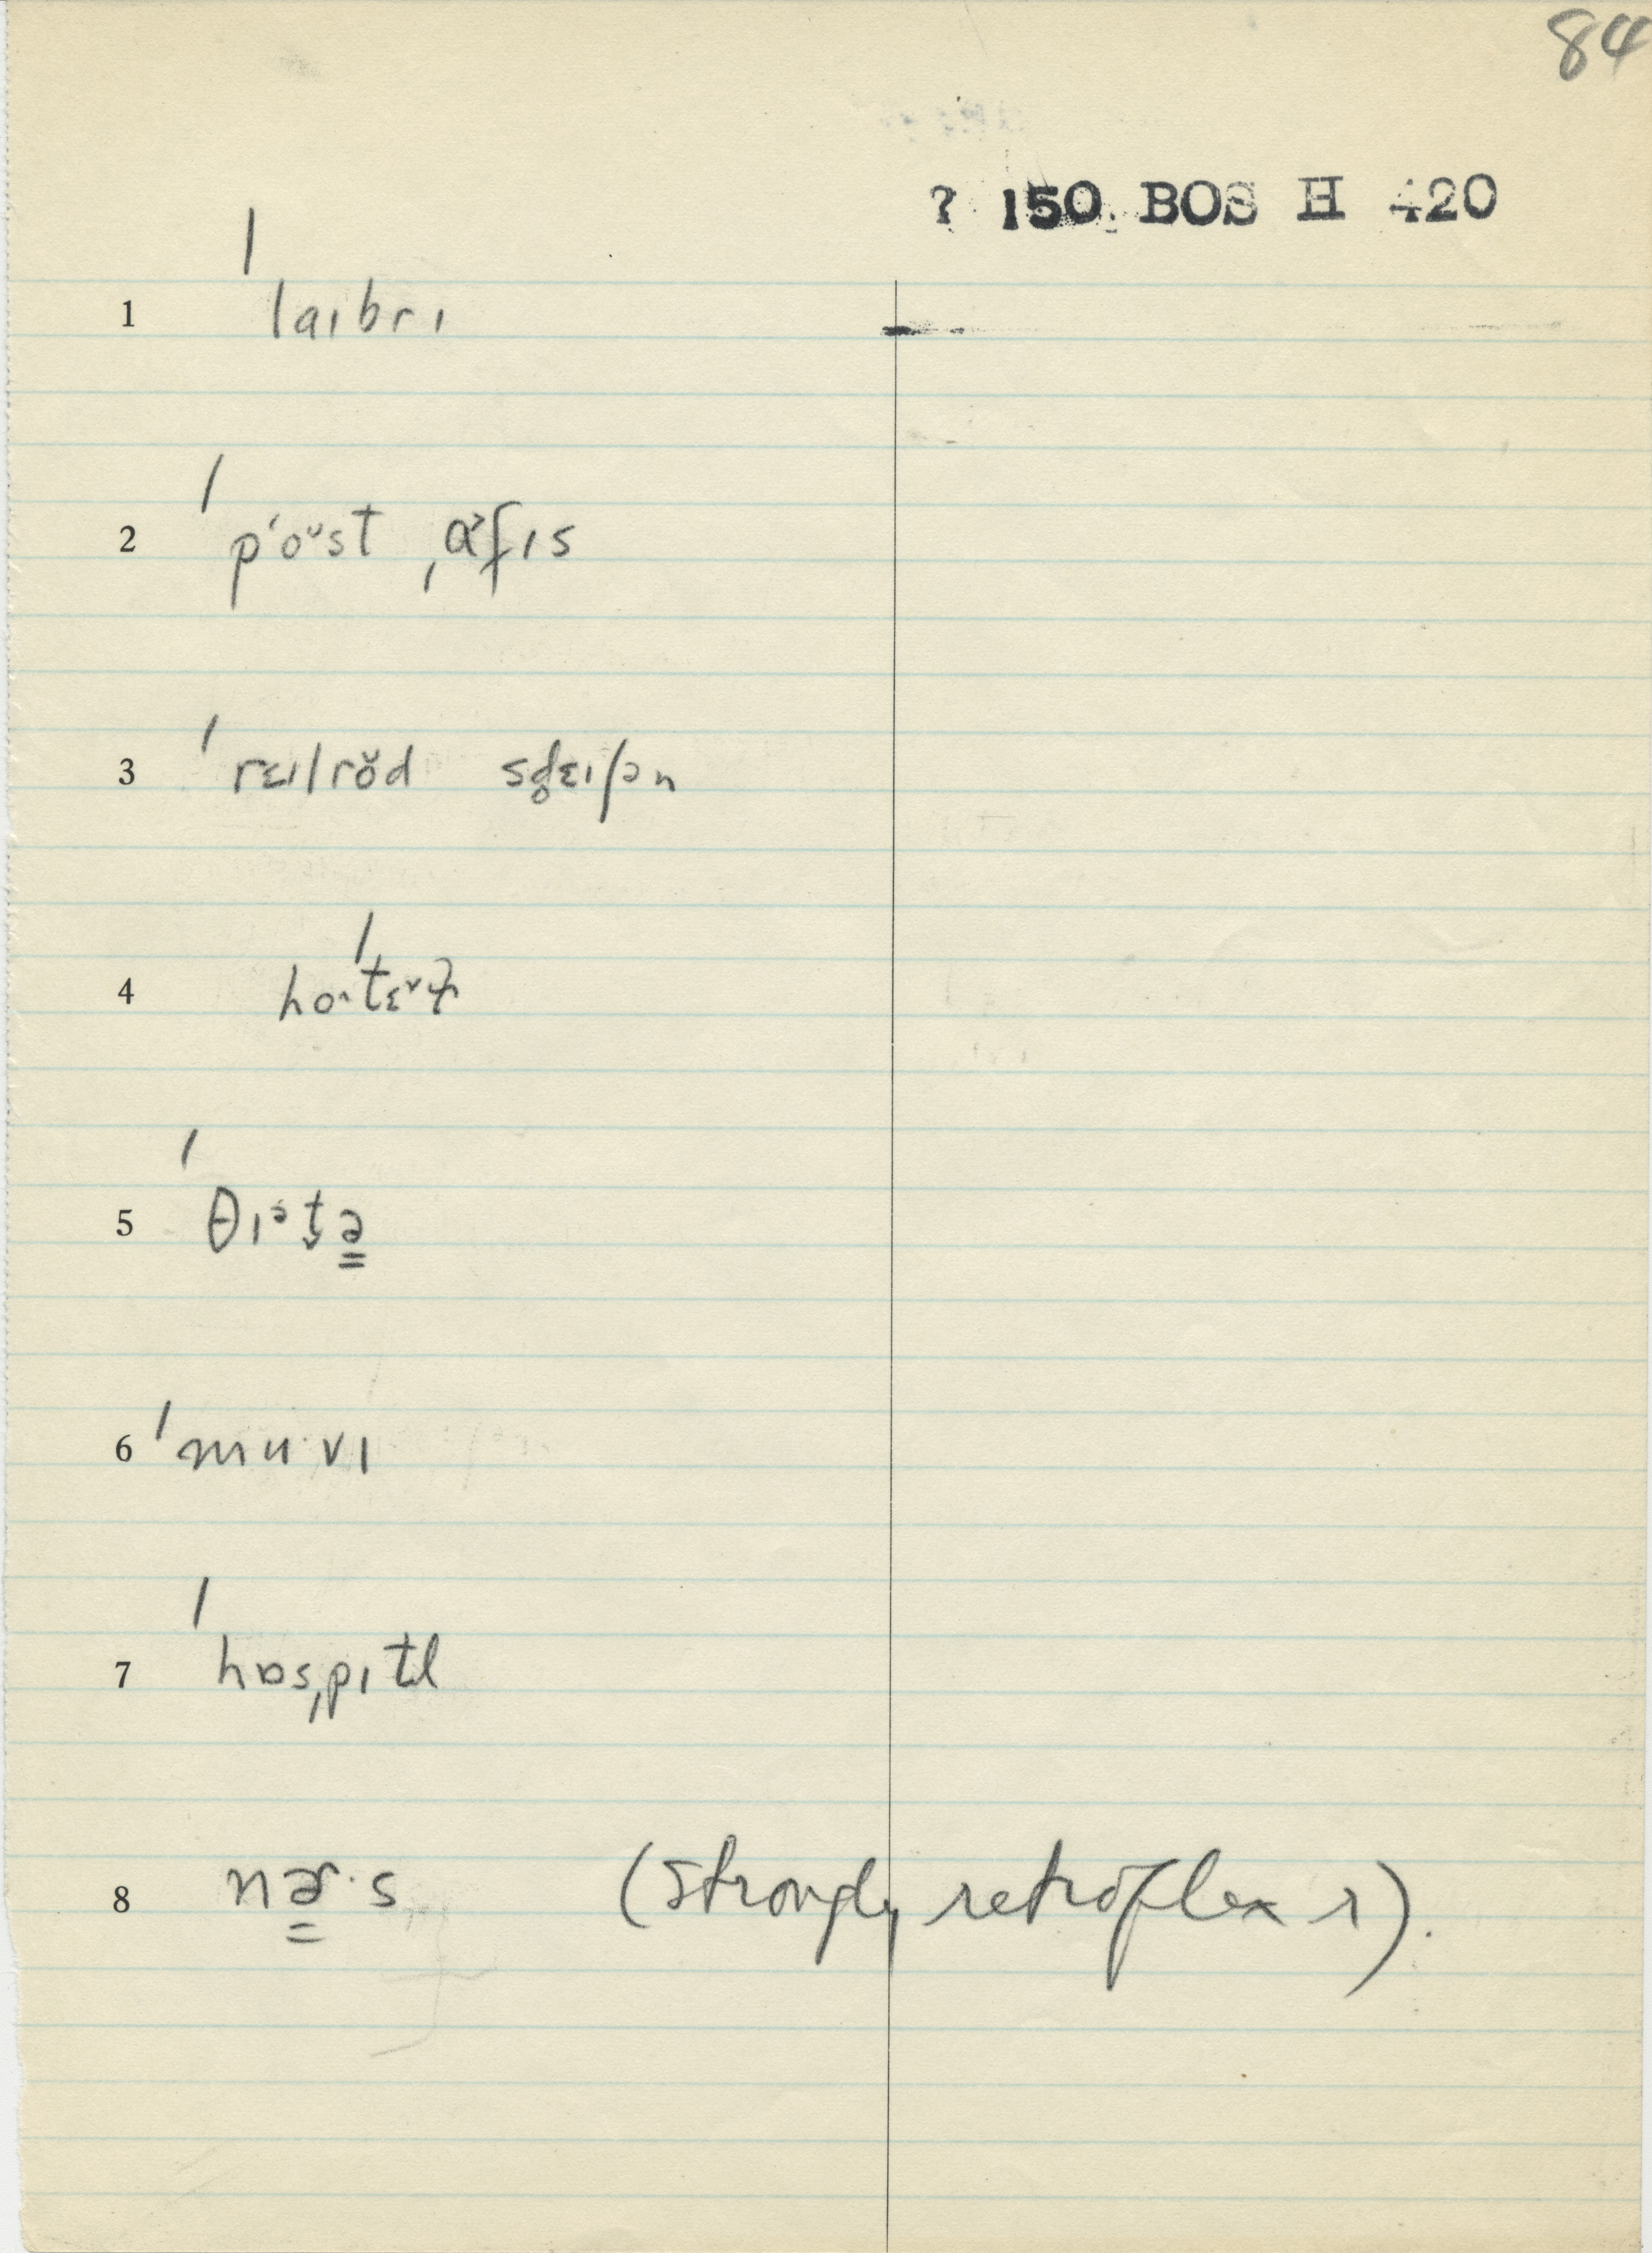 84
? 150 BOS H 420
1 ˈlaɪbrɪ
2 ˈpʻoᵘst ˌɒ˃fɪs
3 ˈrɛɪlrŏd sd̥ɛɪʃən
4 hoˈtɛɫ
5 ˈθɪᵊt̬ə
6 ˈmuˑvɪ
7 ˈhɒsˌpɪtl
8 nɚˑs (strongly retroflex r).